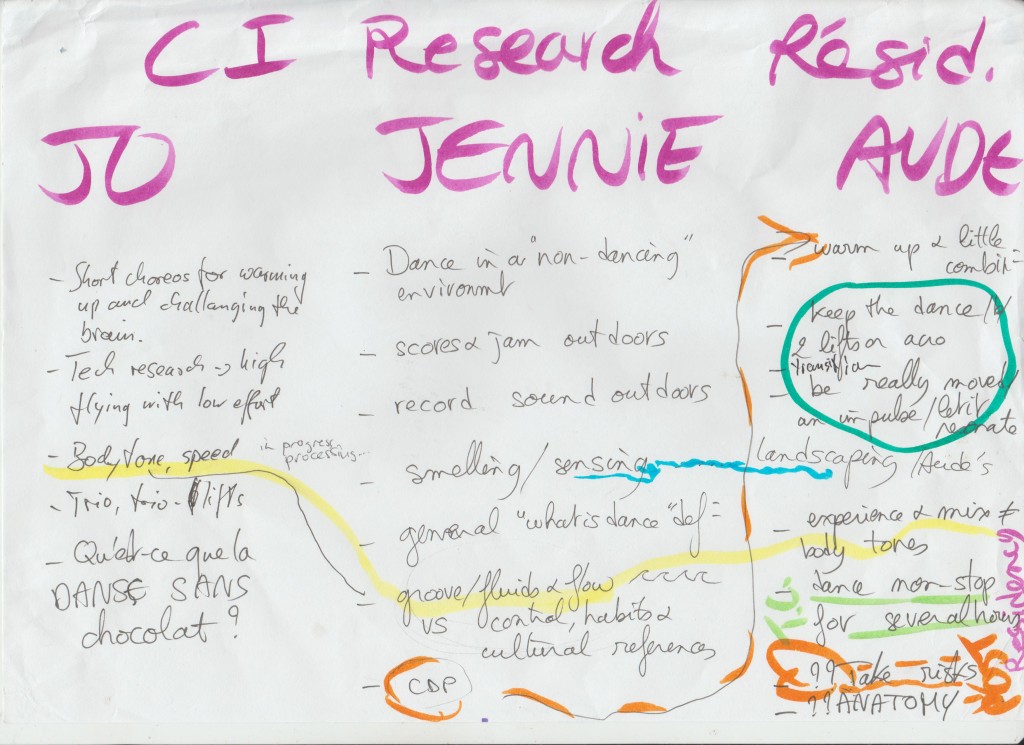 CI Research Résid.
JO
- Short choreos for warming
up and challanging the
brain.
- Tech research -> high
flying with low effort
- Body tone, speed
in progress
processing...
- Trio, trio - lifts
- Qu'est-ce que la
DANSE SANS
chocolat ?
JENNIE
- Dance in a "non-dancing"
environmt
- scores & jam outdoors
- record sound outdoors
- smelling / sensing
landscaping / Aude's
- general "what is dance" def =
- groove / fluids & flow
vs control, habits &
cultural references
- CDP
AUDE
- warm up & little
combi =
- keep the dance / b/
2 lifts or acro
- transition
be really moved /
an impulse / let it
resonate
- experience & mix ≠
body tones
- dance non-stop
for several hours
- ?? Take risks
- ?? ANATOMY
Residency